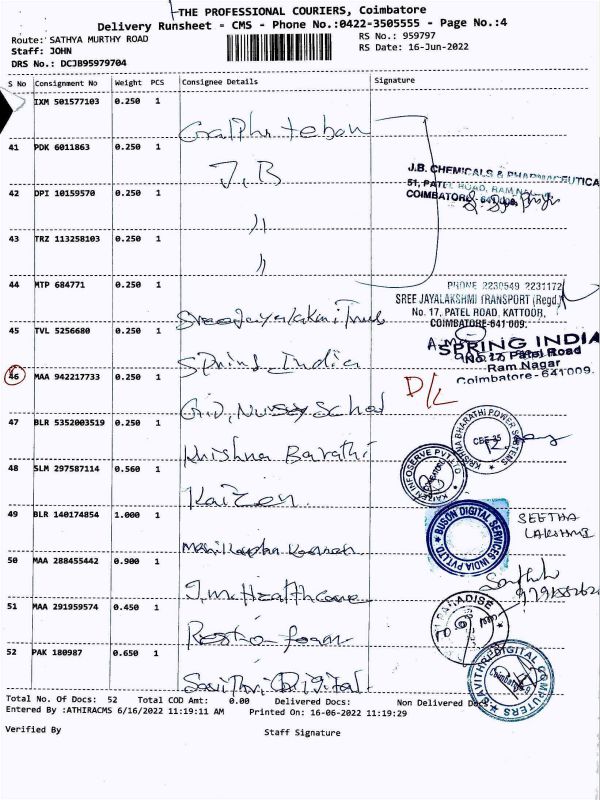 THE PROFESSIONAL COURIERS, Coimbatore
Delivery Runsheet - CMS - Phone No.:0422-3505555 - Page No.:4
Route: SATHYA MURTHY ROAD
RS No.: 959797
Staff: JOHN
RS Date: 16-Jun-2022
DRS No.: DCJB95979704
S No Consignment No Weight PCS Consignee Details Signature
IXM 501577103 0.250 1
41 PDK 6011863 0.250 1
J.B
J.B. CHEMICALS & PHARMACEUTICA
51, PATEL ROAD, RAM NA
COIMBATORE- 641 009.
42 DPI 10159570 0.250 1
43 TRZ 113258103 0.250 1
44 MTP 684771 0.250 1
PHONE 2230549 2231172
SREE JAYALAKSHMI TRANSPORT (Regd.)
No. 17, PATEL ROAD, KATTOOR,
COIMBATORE-641 009.
45 TVL 5256680 0.250 1
Spring India
SPRING INDIA
No. 17 Patel Road
Ram Nagar
Coimbatore-641009.
46 MAA 942217733 0.250 1
D/L
47 BLR 5352003519 0.250 1
Krishna Barathi
KRISHNA BHARATHI POWER SYSTEMS
CBE-35
48 SLM 297587114 0.560 1
Kaizen
KAIZEN INFOSERVE PVT LTD
49 BLR 140174854 1.000 1
BUSON DIGITAL SERVICES INDIA PVT.LTD
SEETHA
LAKSHMI
50 MAA 288455442 0.900 1
J.M. Healthcare
51 MAA 291959574 0.450 1
PARADISE
52 PAK 180987 0.650 1
Savithri Digital
SAVITHRI DIGITAL COMPUTERS
Coimbatore-9
Total No. Of Docs: 52 Total COD Amt: 0.00 Delivered Docs: Non Delivered Docs:
Entered By :ATHIRACMS 6/16/2022 11:19:11 AM Printed On: 16-06-2022 11:19:29
Verified By
Staff Signature